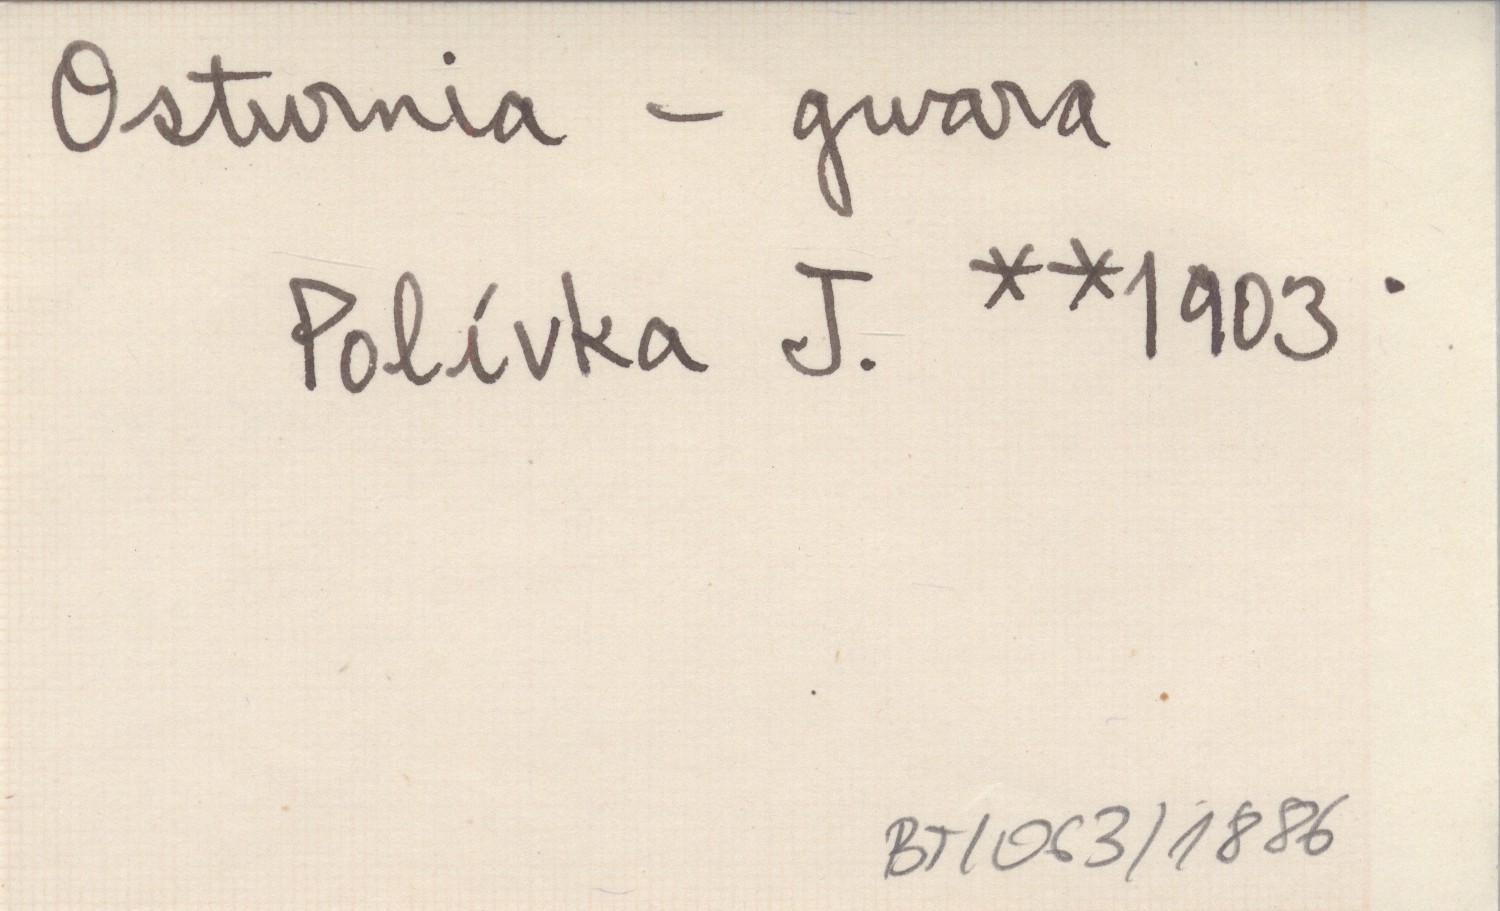 Osturnia – gwara
Polívka J. **1903.
BT/063/1886